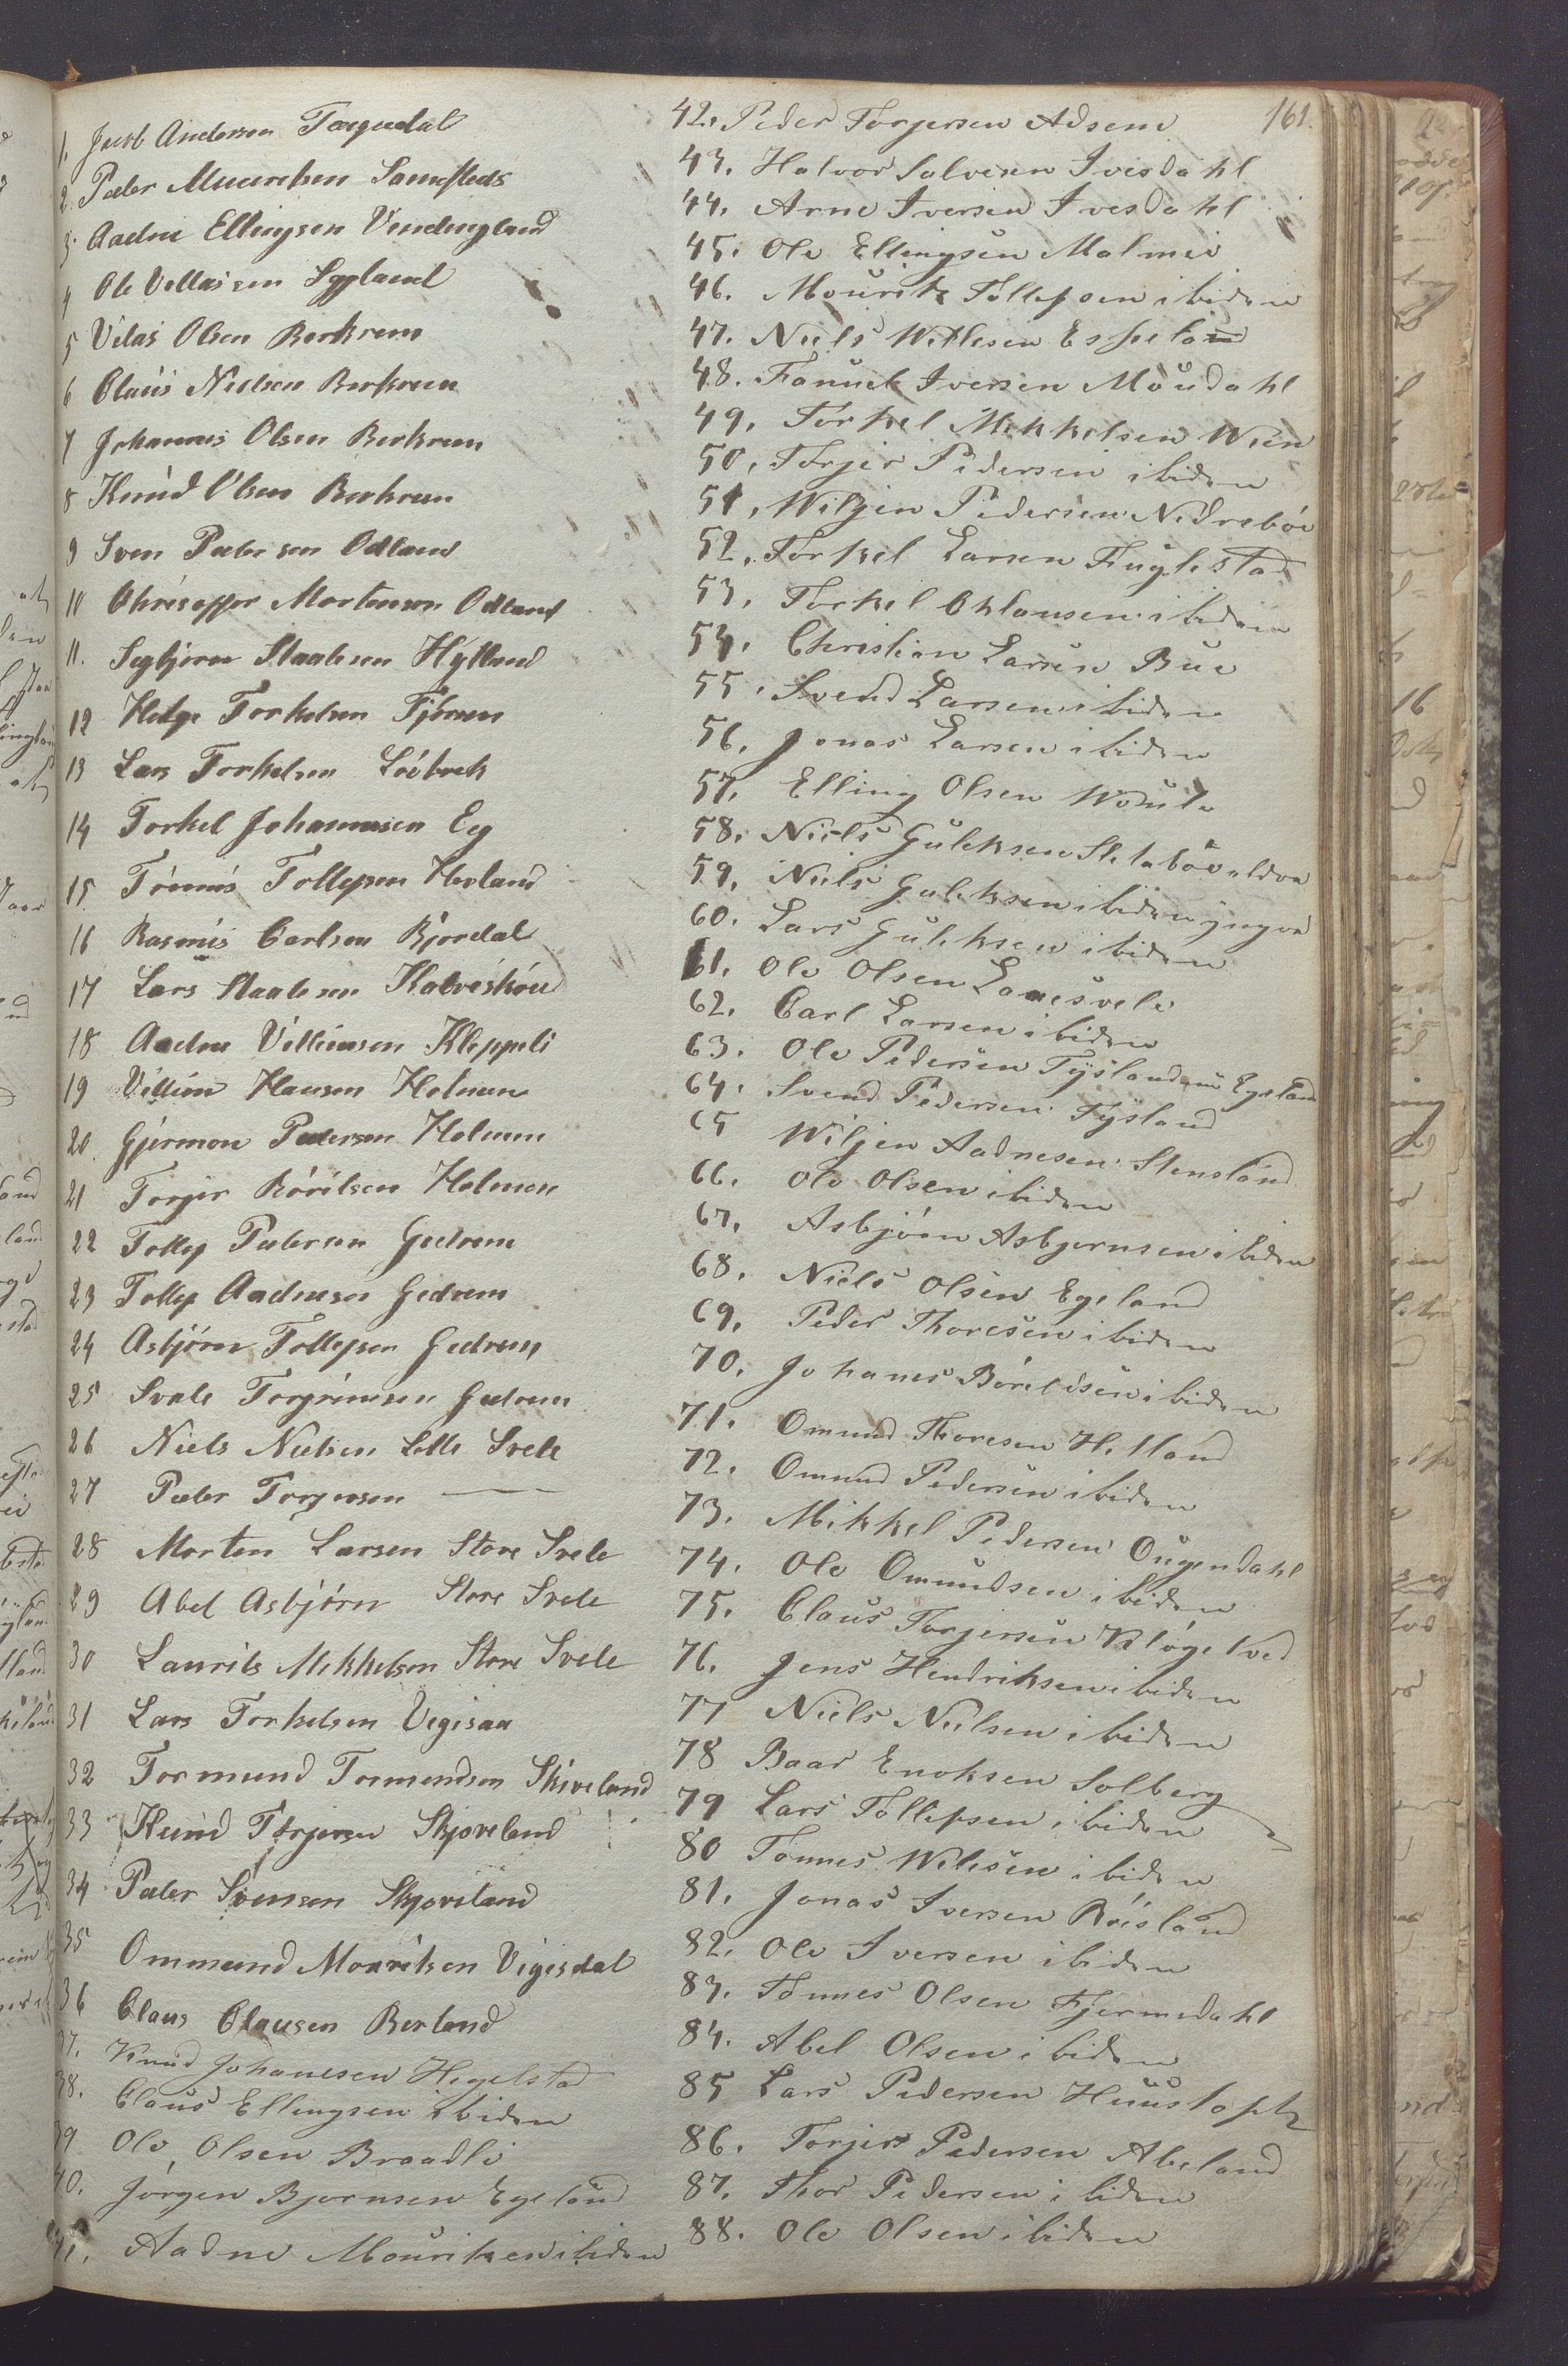 161.
1. Jacob Andersen Tengesdal
2. Peder Mauritsen
3. Aadne Ellingsen Vindingland
4 Ole Sygland
5 Vilas Olsen Berkrem
6 Claus Nielsen Berkrem
7 Johannes Olsen Berkrem
8 Knud Olsen Berkrem
9 Sven Peder sen Odland
10 Mortensen Odland
11. Segbjorn Staale sen Hytland
12 Helge Torkelsen
13 Lars Torkelsen Löibrek
14 Torkel Johannesen Eg
15 Tönnes Tollepsen Hovland
16 Rasmus Carlsen Bjordal
17 Lars Staale sen
18 Aadne Villumsen Kleppeli
19 Villum Hansen Holmen
20. Gjermon Petersen Holmen
21 Torger Börilsen Holmen
22 Tollep Pedersen Gedrem
23 Tollep Aadnesen Gedrem
24 Asbjörn Tollepsen Gedrem
25 Svale Torgrimsen Gedrem
26 Niels Nielsen Lille Svele
27 Peder Torgersen —
28 Morten Larsen Store Svele
29 Abel Asbjörn Store Svele
30 Laurits Mikkelsen Store Svele
31 Lars Torkelsen Vigisaa
32 Tormund Tormundsen Skiveland
33 Knud Torjersen Skjoveland
34 Peder Svensen Skjoveland
35 Ommund Mauritsen Vigisdal
36 Claus Clausen Berland
37. Knud Johanesen Hegelstad
38. Claus Ellingsen ibiden
39 Ole Olsen Braadli
40. Jörgen Bjornsen Egeland
41. Aadne Mouritsen ibiden
42. Peder Torjersen Adsem
43. Halvor Salvesen Ivesdahl
44. Arne Iversen Ivesdahl
45. Ole Ellingsen Malmei
46. Mourits Tollepsen ibiden
47. Niels Willesen Espeland
48. Iversen Moudahl
49. Torkel Mikkelsen Wien
50. Torjer Pedersen ibiden
51. Wiljen Pedersen Nedreböe
52. Torkel Larsen Fuglestad
53. Torkel ibiden
54. Christian Larsen Bue
55. Svend Larsen ibiden
56. Jonas Larsen ibiden
57. Elling Olsen
58. Niels Guleksen Sletaböe eldre
59. Niels Guleksen ibiden yngre
60. Lars Guleksen ibiden
61. Ole Olsen
62. Carl Larsen ibiden
63. Ole Pedersen Tysland Egeland
64. Svend Pedersen Tysland
65 Wiljen Aadnesen Stensland
66. Ole Olsen ibiden
67. Asbjörn Asbjørnsen ibiden
68. Niels Olsen Egeland
69. Peder Thoresen ibiden
70. Johanes Börildsen ibiden
71. Omund Thoresen Hetland
72. Omund Pedersen ibiden
73. Mikkel Pedersen Ougendahl
74. Ole Omundsen ibiden
75. Claus Torjersen Klögetvod
76. Jens Hendriksen ibiden
77 Niels Nielsen ibiden
78 Baar Enoksen Solberg
79 Lars Tollepsen ibiden
80 Tonnes Wilesen ibiden
81. Jonas Iversen Röisland
82. Ole Iversen ibiden
83. Tönnes Olsen Fjermedahl
84. Abel Olsen ibiden
85 Lars Pedersen
86. Torjer Pedersen Abeland
87. Thor Pedersen ibiden
88. Ole Olsen ibiden